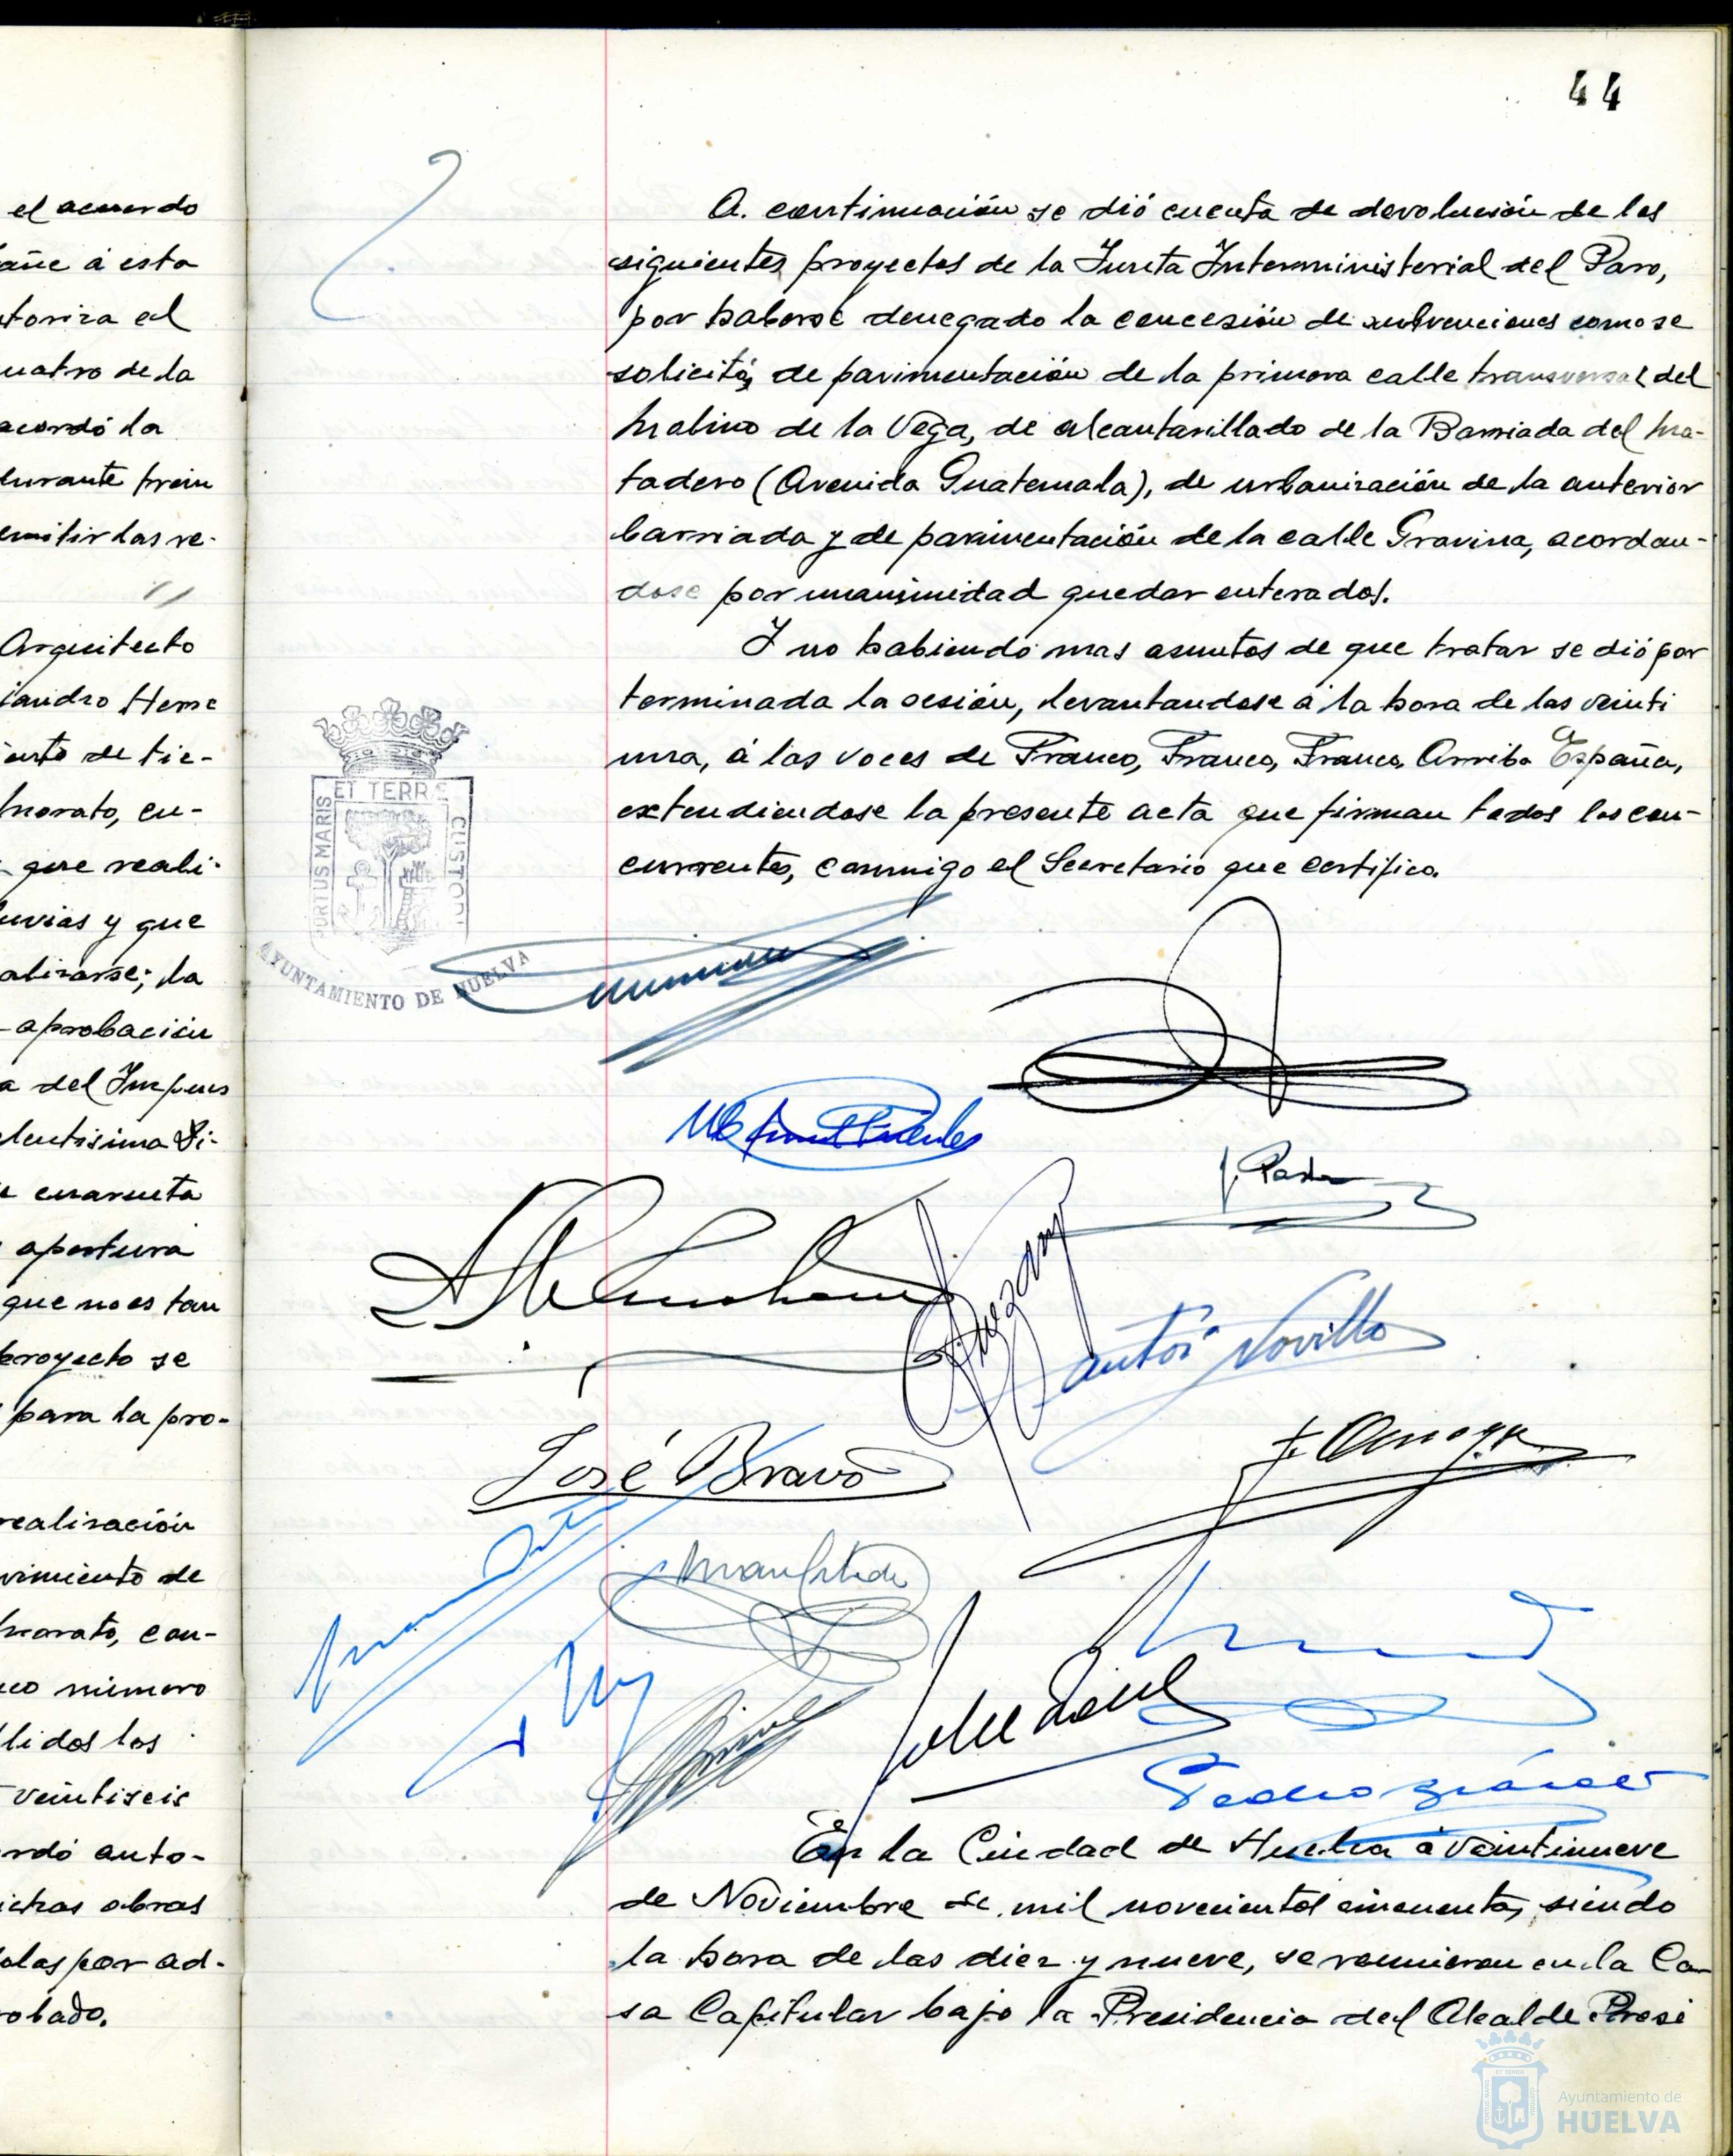 44
el acuerdo
añe á esta
utoriza el
uatro de la
acordó la
durante
emitir las re-
Arquitecto
jandro
de tie-
Morato, en-
que reali-
luvias y que
alizarse; la
aprobación
a del
lentisima Di-
cuarenta
apertura
que no es tan
proyecto se
para la pro-
realización
vimiento de
Morato, con-
número
los
veintiseis
rdó auto-
ichas obras
olas por ad-
robado.
A continuación se dió cuenta de devolución de los
siguientes proyectos de la Junta Interministerial del Paro,
por haberse denegado la concesión de subvenciones como se
solicitó, de pavimentación de la primera calle transversal del
Molino de la Vega, de alcantarillado de la Barriada del Ma-
tadero (Avenida Guatemala), de urbanización de la anterior
barriada y de pavimentación de la calle Gravina, acordan-
dose por unanimidad quedar enterados.
Y no habiendo mas asuntos de que tratar se dió por
terminada la sesión, levantandose á la hora de las veinti
una, á las voces de Franco, Franco, Franco, Arriba España,
extendiendose la presente acta que firman todos los con-
currentes, conmigo el Secretario que certifico.
PORTUS MARIS ET TERRE CUSTODI
AYUNTAMIENTO DE HUELVA
José Bravo
En la Ciudad de Huelva á veintinueve
de Noviembre de mil novecientos cincuenta, siendo
la hora de las diez y nueve, se reunieron en la Ca-
sa Capitular bajo la Presidencia del Alcalde Presi
Ayuntamiento de
HUELVA